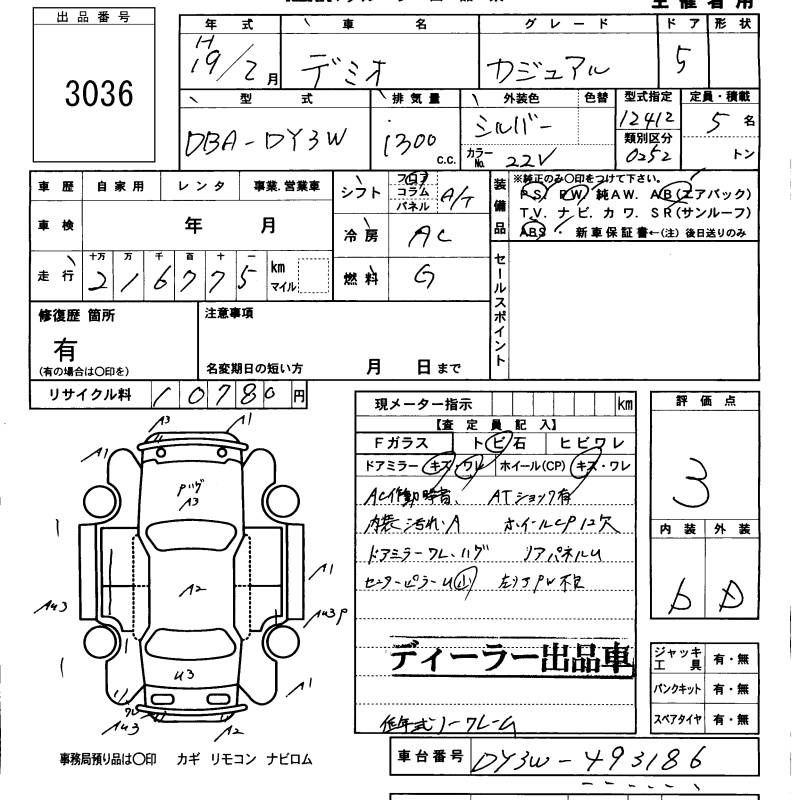 主催者用
出品番号
3036
年式 車名 グレード ドア 形状
H19/2月 デミオ カジュアル 5
型式 排気量 外装色 色替 型式指定 定員・積載
DBA-DY3W 1300 c.c. シルバー 12412 5名
カラーNo. 22V 類別区分 0252 トン
車歴 自家用 レンタ 事業.営業車
車検 年 月
走行 十万 万 千 百 十 一
216775 km マイル
シフト フロア コラム パネル A/T
冷房 AC
燃料 G
装備品
※純正のみ〇印をつけて下さい。
PS. PW. 純AW. AB(エアバック)
TV. ナビ. カワ. SR(サンルーフ)
ABS ・ 新車保証書←(注) 後日送りのみ
セールスポイント
修復歴 箇所
有
(有の場合は〇印を)
注意事項
名変期日の短い方 月 日まで
リサイクル料 10780円
現メーター指示 km
【査定員記入】
Fガラス トビ石 ヒビワレ
ドアミラー キズ・ワレ ホイール(CP) キズ・ワレ
AC作動時音、 ATショック有
内装汚れ・A ホイールCP1ヶ欠
ドアミラーワレ、ハゲ リアパネルU
センターピラーU小 左リヤPW不良
ディーラー出品車
低年式ノークレーム
評価点
3
内装 外装
b D
ジャッキ工具 有・無
パンクキット 有・無
スペアタイヤ 有・無
A3 A1
A1
Pハゲ
A3
A2
A1
AU3
AU3P
U3
A1
ワレ
AU3
A2
事務局預り品は〇印 カギ リモコン ナビロム
車台番号 DY3W-493186